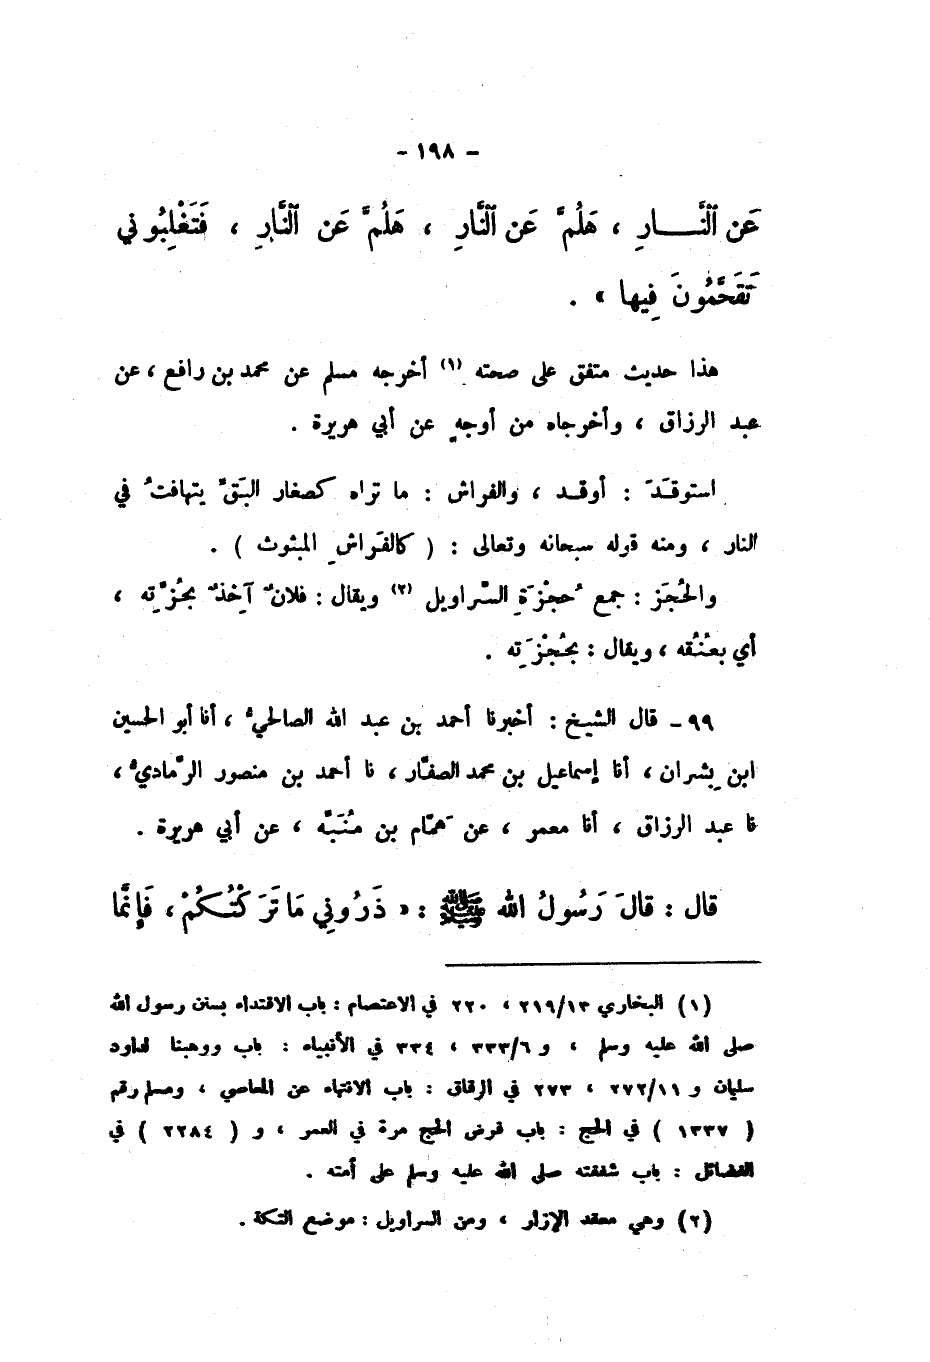 - ١٩٨ -
عَن ٱلنَّــارِ ، هَلُمَّ عَن ٱلنَّارِ ، هَلُمَّ عَن ٱلنَّارِ ، فَتَغْلِبُوني
تَقَحَّمُونَ فِيها » .
هذا حديث متفق على صحته (١) أخرجه مسلم عن محمد بن رافع ، عن
عبد الرزاق ، وأخرجاه من أوجهٍ عن أبي هريرة .
استوقَدَ : أوقد ، والفراش : ما تراه كصغار البَقِّ يتهافتُ في
النار ، ومنه قوله سبحانه وتعالى : ( كالفَراشِ المبثوث ) .
والحُجَز : جمع حُجزَةِ السّراويل (٢) ويقال : فلانٌ آخِذٌ بحُزَّتِه ،
أي بعُنُقه ، ويقال : بحُجْزَتِه .
٩٩ - قال الشيخ : أخبرنا أحمد بن عبد الله الصالحيُّ ، أنا أبو الحسين
ابن بِشران ، أنا إسماعيل بن محمد الصفّار ، نا أحمد بن منصور الرَّماديُّ ،
نا عبد الرزاق ، أنا معمر ، عن هَمّام بن مُنَبِّه ، عن أبي هريرة .
قال : قالَ رَسُولُ الله ﷺ : « ذَرُوني مَا تَرَكْتُكُمْ ، فَإِنَّما
(١) البخاري ٢١٩/١٣ ، ٢٢٠ في الاعتصام : باب الاقتداء بسنن رسول الله
صلى الله عليه وسلم ، و ٣٣٣/٦ ، ٣٣٤ في الأنبياء : باب ووهبنا لداود
سليمان و ٢٧٢/١١ ، ٢٧٣ في الرقاق : باب الانتهاء عن المعاصي ، ومسلم رقم
( ١٣٣٧ ) في الحج : باب فرض الحج مرة في العمر ، و ( ٢٢٨٤ ) في
الفضائل : باب شفقته صلى الله عليه وسلم على أمته .
(٢) وهي معقد الإزار ، ومن السراويل : موضع التكة .